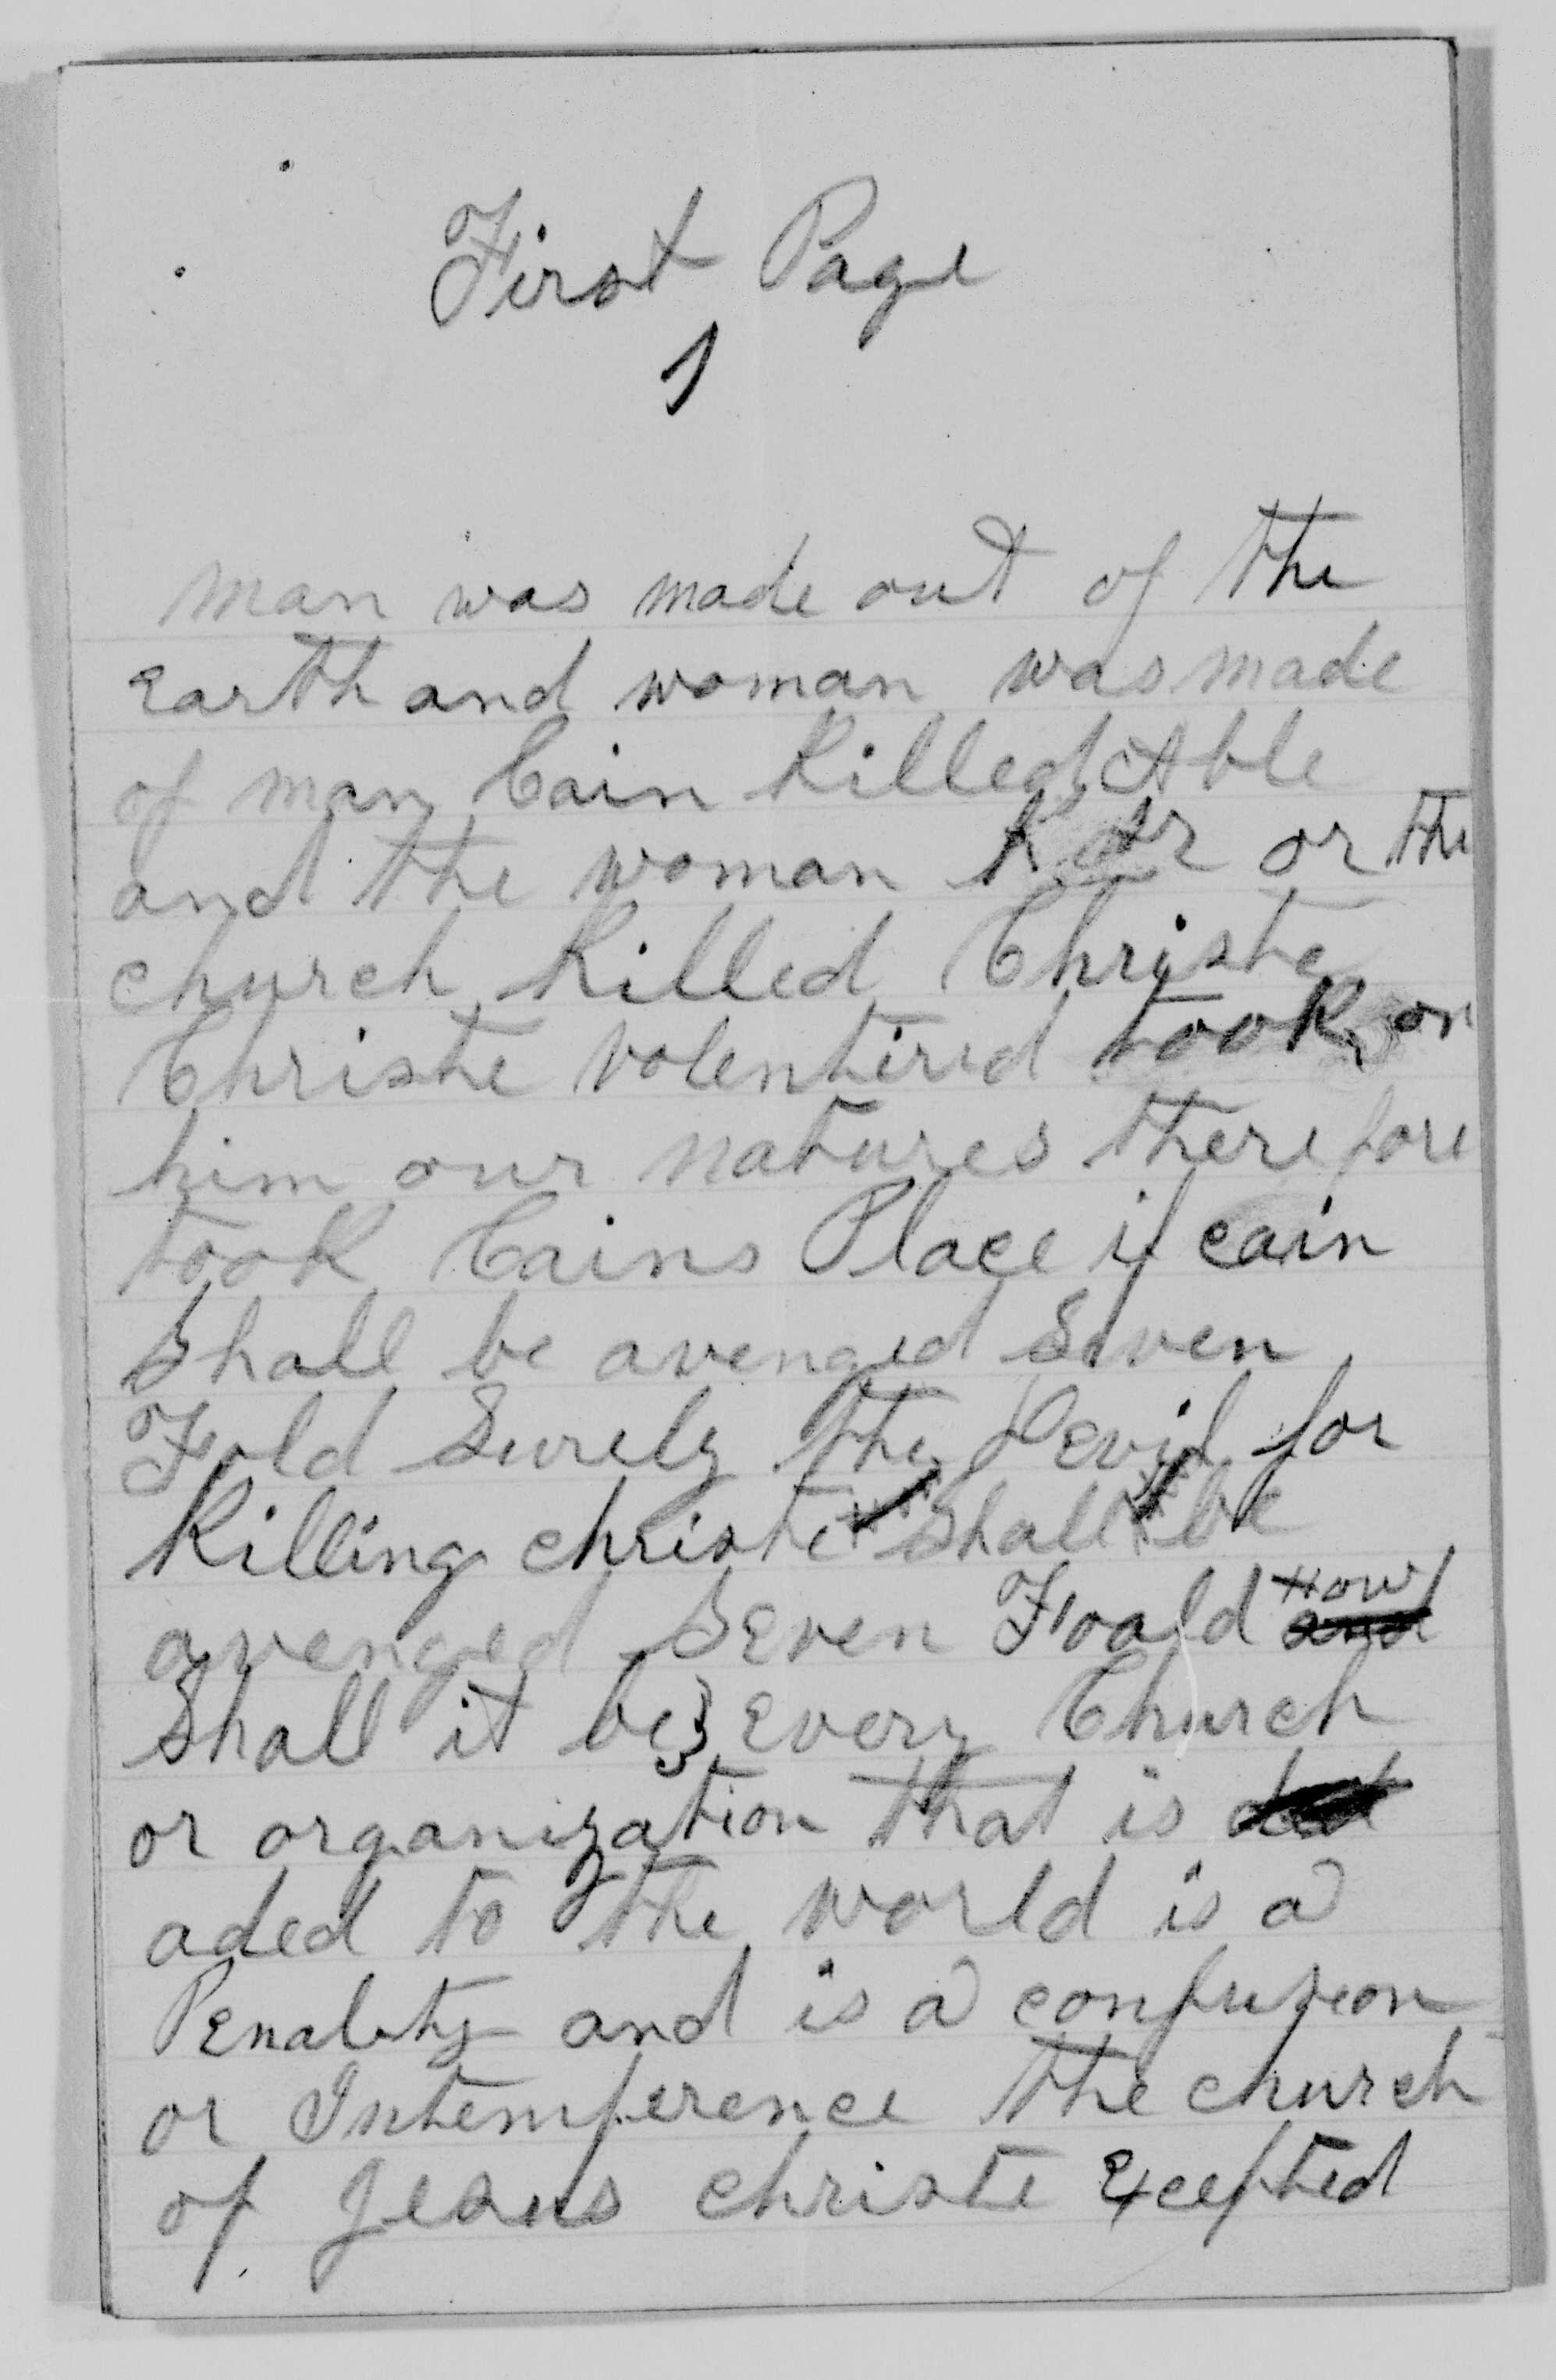 First Page
1
man was made out of the
Earth and woman was made
of man Cain Killed Able
and the woman or the
church Killed Christe
Christe volentired took on
him our natures therefore
took Cains Place if cain
Shall be avenged Seven
Fold Surely the Devil for
Killing christe shall be
avenged SEven Foald How
and
Shall it be} Every Church
or organization that is
aded to the world is a
PEnality and is a confuzion
or Intemference the church
of Jesus christe Excepted